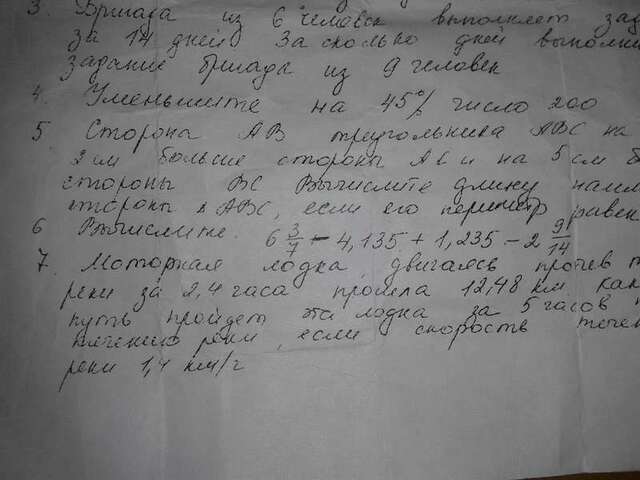 3. Бригада из 6 человек выполняет
за 14 дней. За сколько дней
задание бригада из 9 человек
4. Уменьшите на 45% число 200
5 Сторона AB треугольника ABC на
2 см больше стороны AC и на 5 см
стороны BC Вычислите длину
стороны ABC, если его периметр равен
6 Вычислите. 6 3/7 - 4,135 + 1,235 - 2 9/14
7. Моторная лодка, двигаясь против
реки за 2,4 часа прошла 12,48 км.
путь пройдет эта лодка за 5 часов
течению реки, если скорость
реки 1,4 км/г